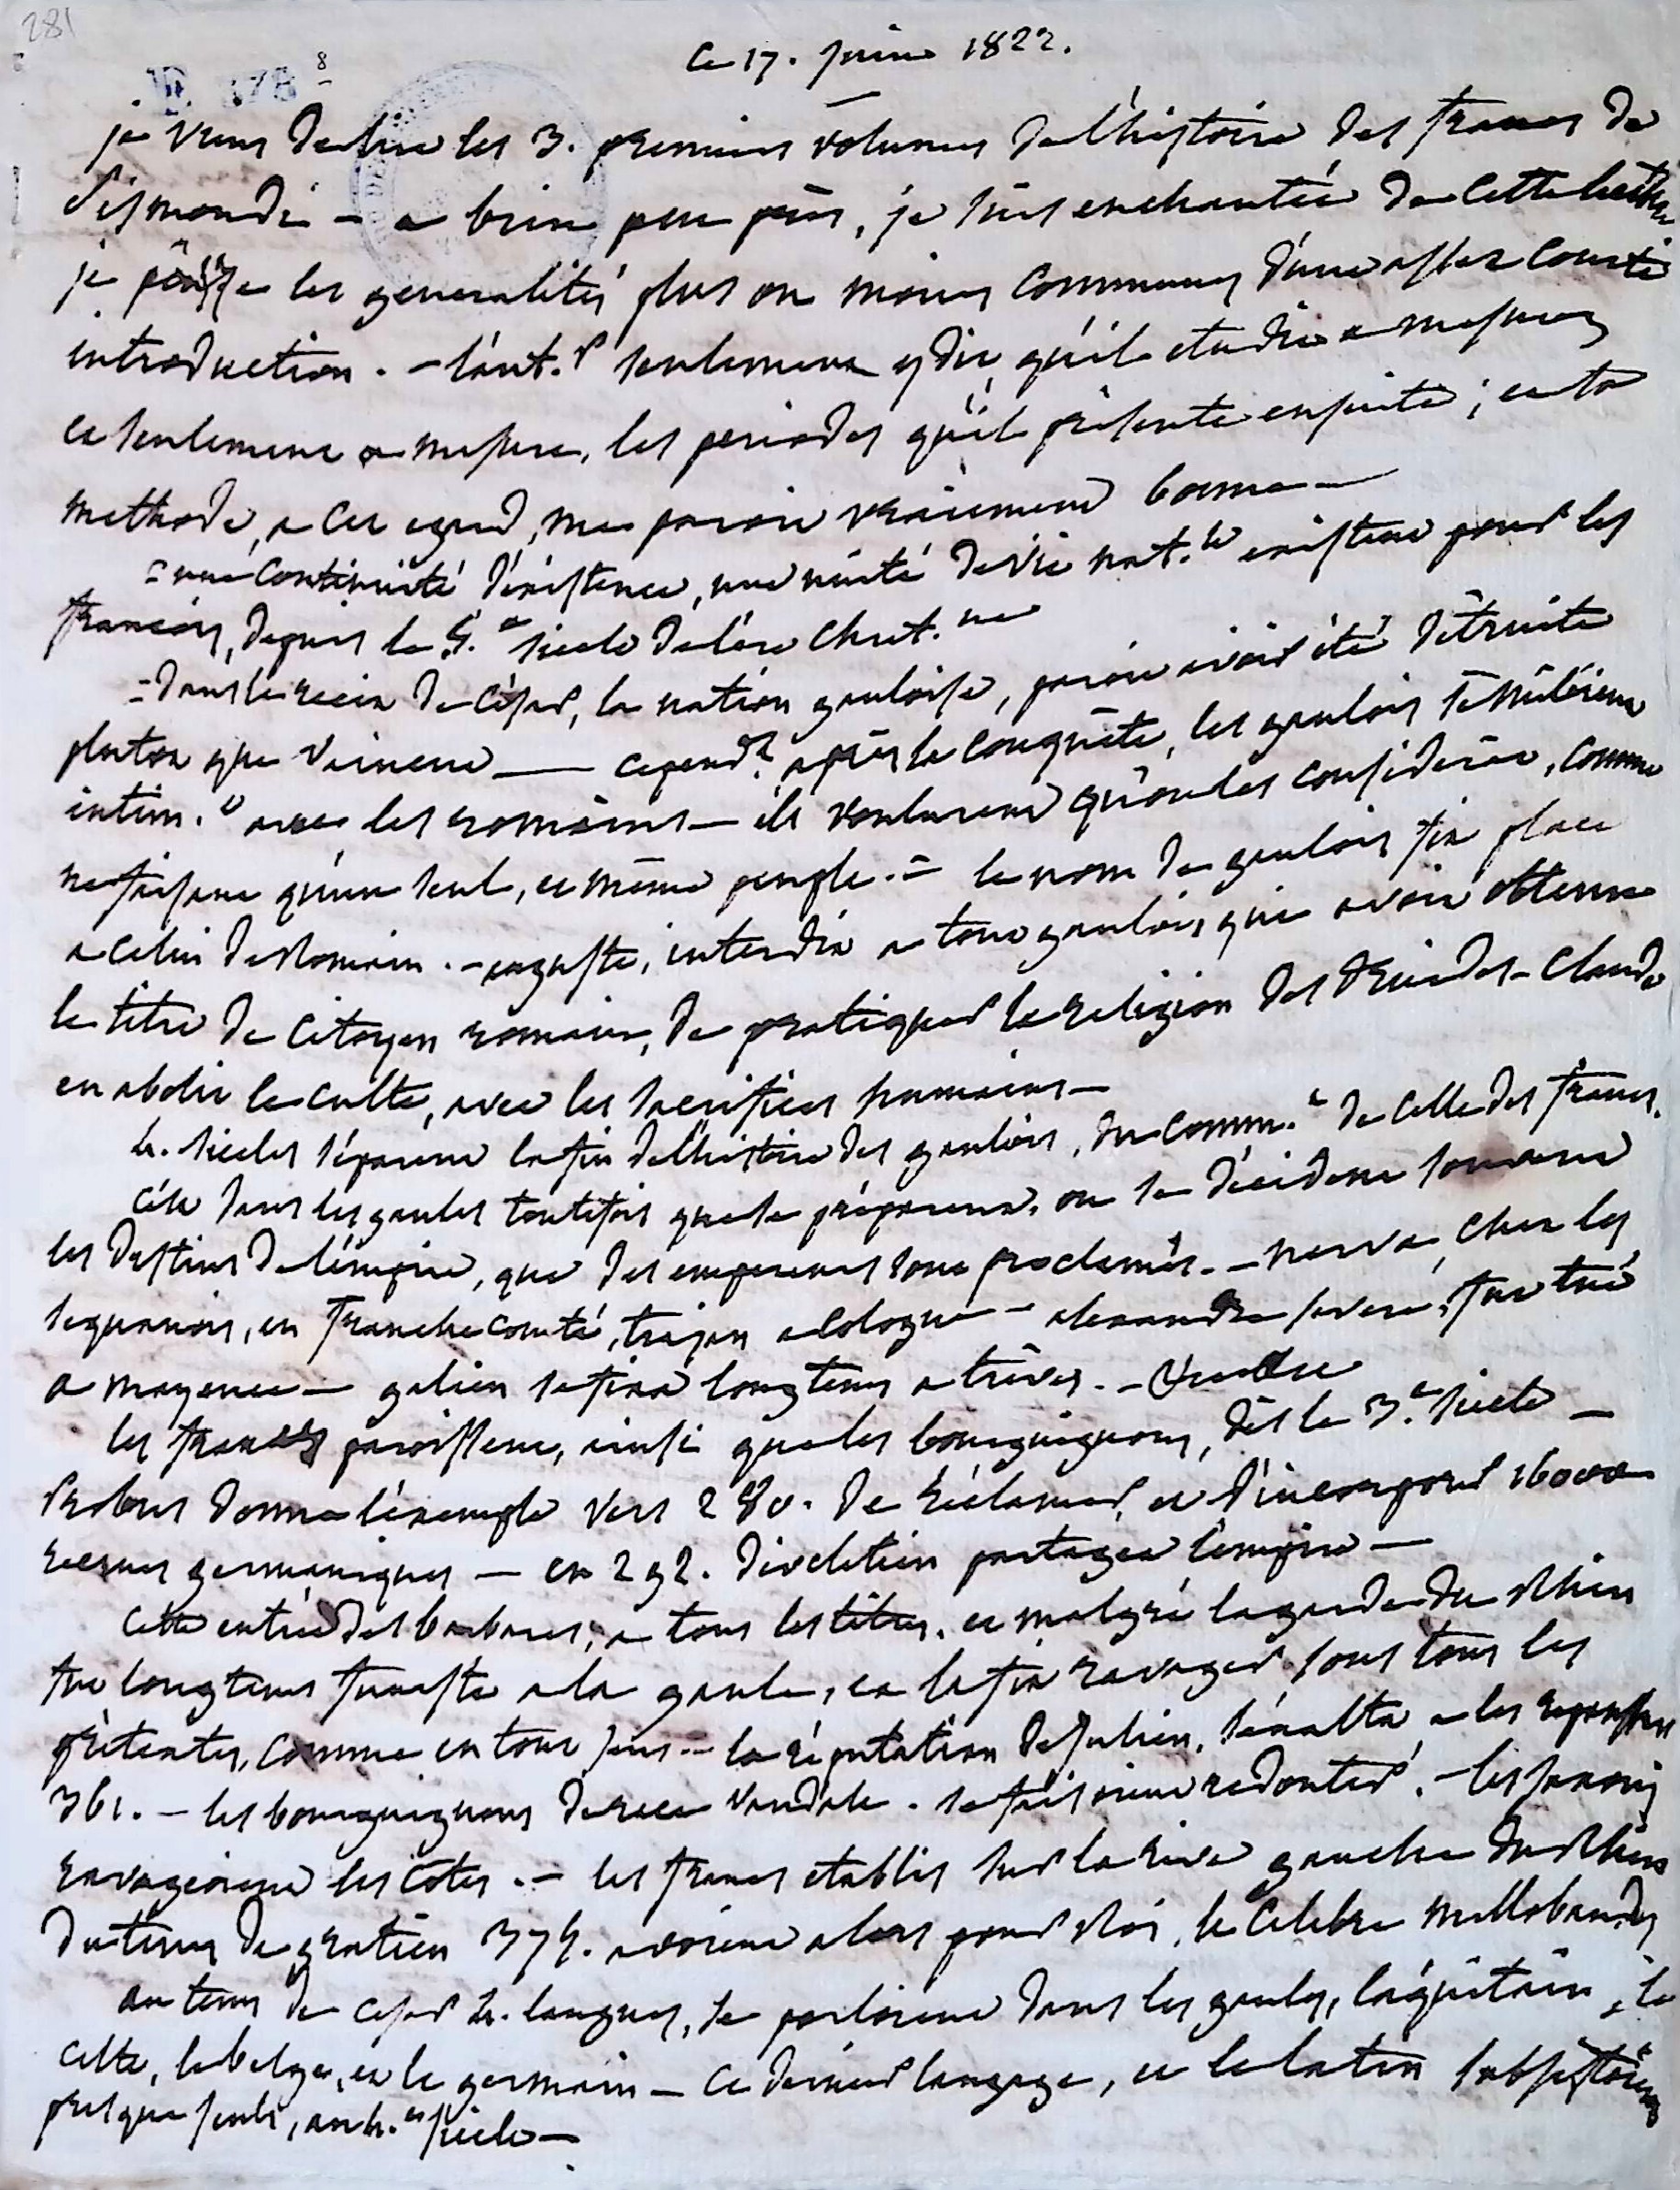 281
8
ce 17. juin 1822.
je viens de lire les 3. premiers volumes de l'histoire des francs de
Sismondi — a bien peu près, je suis enchantée de cette lecture
je passe les generalités plus ou moins communes d'une assez courte
introduction. — l'aut.r seulement y dit qu'il etudie a mesure,
et seulement a mesure, les periodes qu'il présente ensuite; cette
methode, a cet egard, me paroit vraiement bonne —
= une continuité d'existence, une unité de vie nat.le existent pour les
françois, depuis le 5.e siecle de l'ère chret.ne
= dans le recit de César, la nation gauloise, paroit avoir été détruite
plutot que vaincue — cepend.t après la conquête, les gaulois se mêlèrent
intim.t avec les romains — ils voulurent qu'on les considerât, comme
ne faisant qu'un seul, et même peuple. = le nom de gaulois fit place
a celui de Romain. — auguste, interdit a tout gaulois, qui avoit obtenu
le titre de citoyen romain, de pratiquer la religion des druides — Claude
en abolit le culte, avec les sacrifices humains —
4. siecles séparent la fin de l'histoire des gaulois, du comm.t de celle des francs.
C'est dans les gaules toutefois que se préparent, ou se décident souvent
les destins de l'empire, que des empereurs sont proclamés. — nerva, chez les
sequanois, en Franche comté, trajan a Cologne — alexandre severe, fut tué
a mayence — galien se tint longtems a trèves. —
les francs paroissent, ainsi que les bourguignons, dès le 3.e siecle —
Probus donna l'exemple vers 280. de réclamer, et d'incorporer 16000
recrues germaniques — en 292. Dioclétien partagea l'empire —
Cette entrée des barbares, a tous les titres, et malgré la garde du Rhin
fut longtems funeste a la gaule, et la fit ravager sous tous les
prétextes, comme en tout sens — la réputation de Julien, tenoit a les repousser
361. — les bourguignons de race Vandale. se faisoient redouter. — les saxons
ravageoient les côtes. — les francs etablis sur la rive gauche du Rhin
du tems de gratien 374. avoient alors pour Roi, le Celebre mellobaudes
au tems de cesar 4. langues, se parloient dans les gaules, l'aquitain, le
celte, le belge, et le germain — ce dernier langage, et le latin subsistoient
presque seuls, au 4.e siecle —